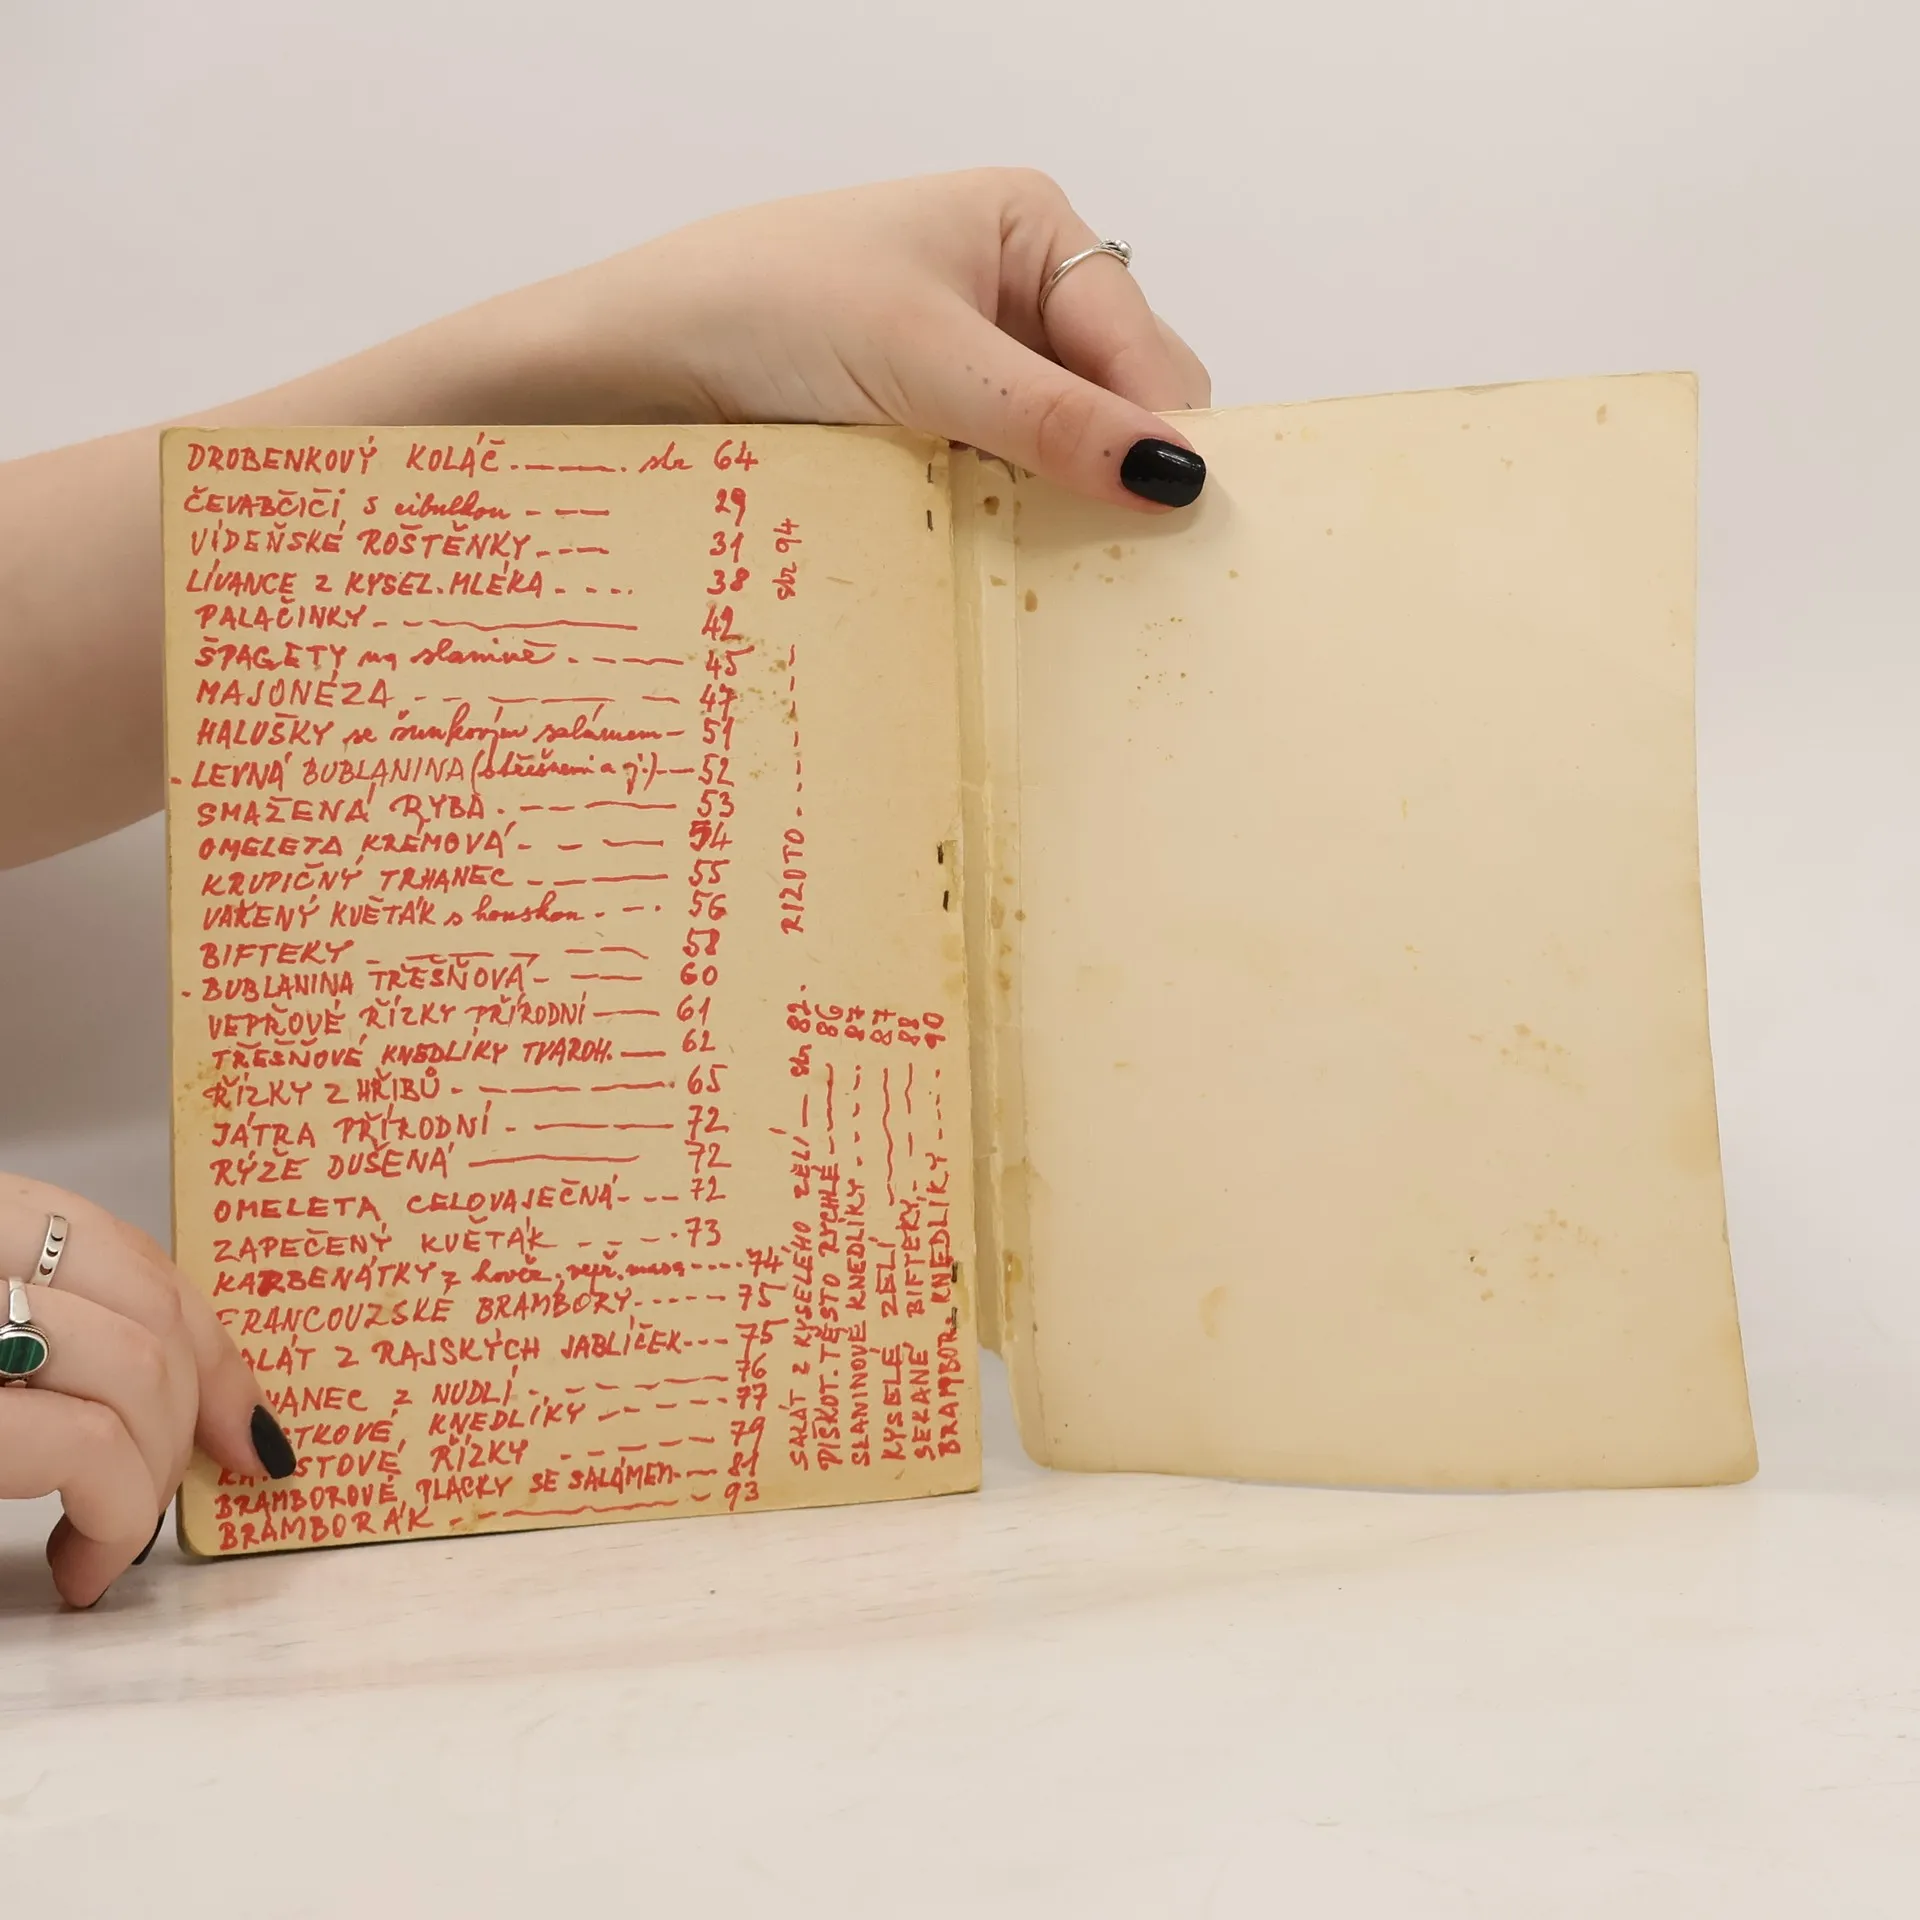 DROBENKOVÝ KOLÁČ.----. str 64
ČEVABČIČI s cibulkou - -- 29
VÍDEŇSKÉ ROŠTĚNKY---- 31
LÍVANCE Z KYSEL. MLÉKA - - - . 38
PALAČINKY- - ---- 42
ŠPAGETY na slanině . - --- 45
MAJONÉZA - - --- - 47
HALUŠKY se šunkovým salámem - 51
- LEVNÁ BUBLANINA (s třešněmi a j.) -- 52
SMAŽENÁ RYBA . - --- 53
OMELETA KRÉMOVÁ - - -- 54
KRUPIČNÝ TRHANEC - ---- 55
VAŘENÝ KVĚTÁK s houskou - - - . 56
BIFTEKY - ---- -- 58
- BUBLANINA TŘEŠŇOVÁ - -- 60
VEPŘOVÉ ŘÍZKY PŘÍRODNÍ -- 61
TŘEŠŇOVÉ KNEDLÍKY TVAROH. -- 62
ŘÍZKY Z HŘIBŮ - ----. 65
JÁTRA PŘÍRODNÍ - ---- 72
RÝŽE DUŠENÁ ---- 72
OMELETA CELOVAJEČNÁ- -- 72
ZAPEČENÝ KVĚTÁK - - - . 73
KARBENÁTKY z hověz. vepř. masa ---- 74
FRANCOUZSKÉ BRAMBORY----- 75
ALÁT Z RAJSKÝCH JABLÍČEK--- 75
Z NUDLÍ - - ---- 76
KNEDLÍKY ---- 77
ŘÍZKY - ---- 79
BRAMBOROVÉ PLACKY SE SALÁMEM--- 81
BRAMBORÁK - ---- - 93
RIZOTO - - - - - - str 94
SALÁT Z KYSELÉHO ZELÍ -- str 82.
PIŠKOT. TĚSTO RYCHLÉ ---- 86
SLANINOVÉ KNEDLÍKY - - - - 87
KYSELÉ ZELÍ ---- 87
SEKANÉ BIFTEKY - - -- 88
BRAMBOR. KNEDLÍKY - - - - 90